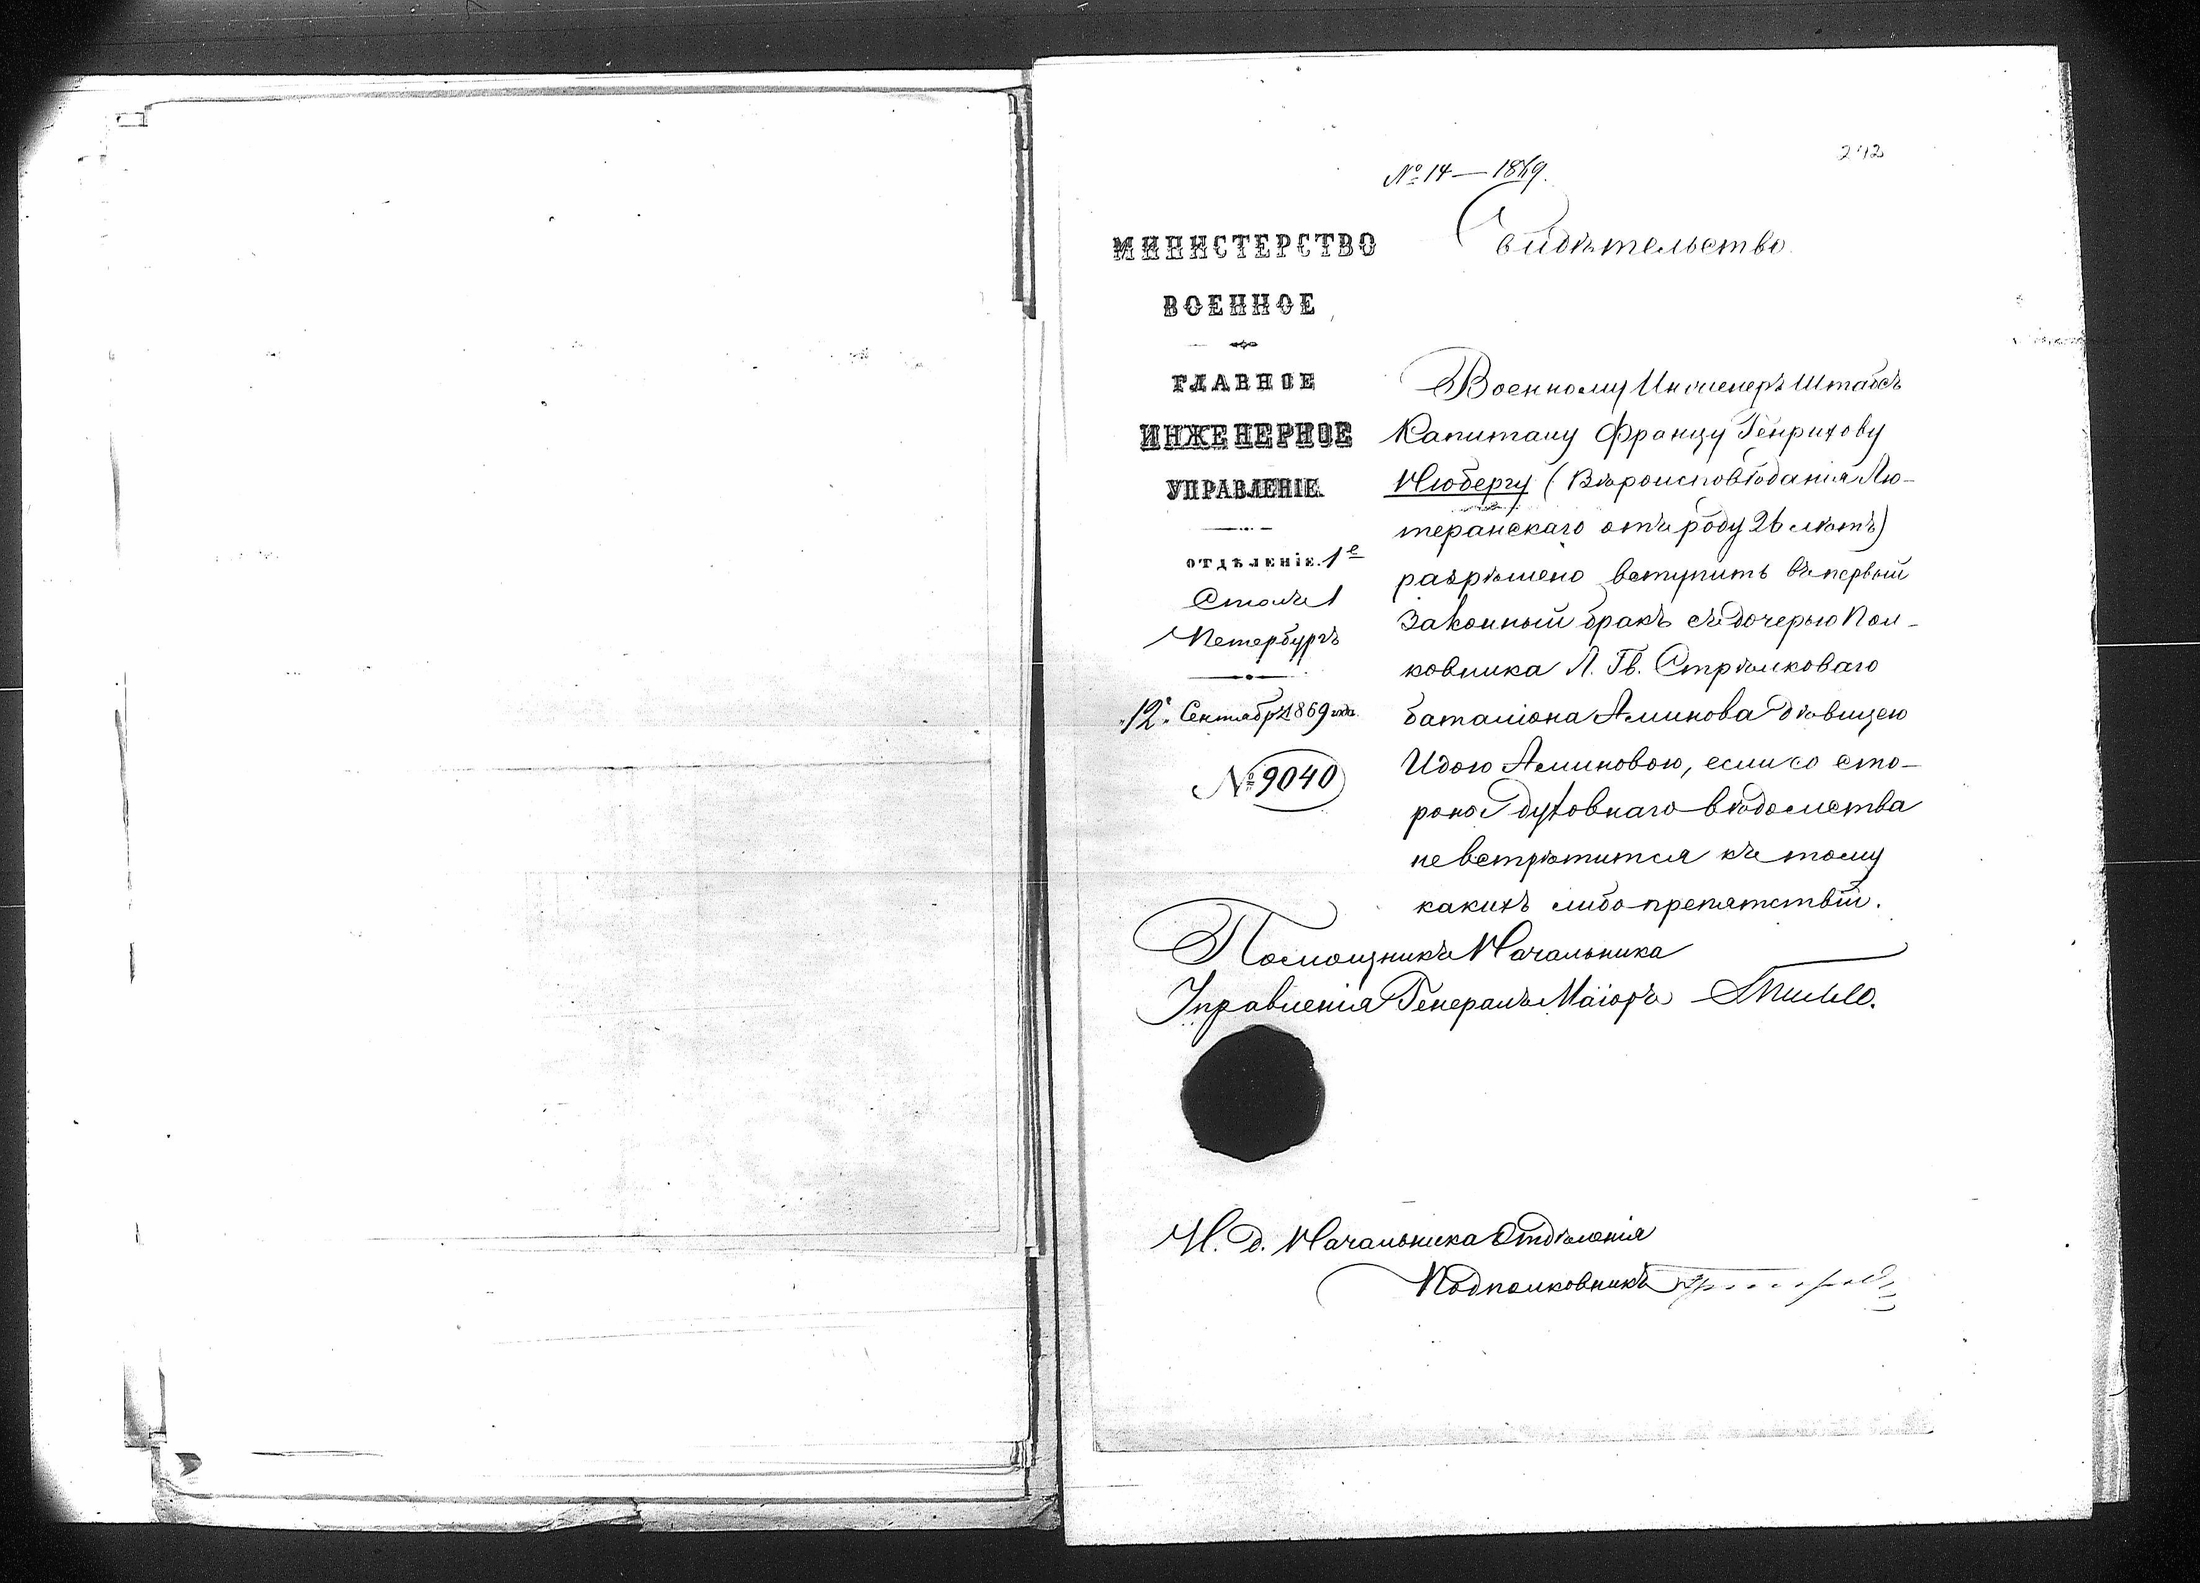 242
№ 14 — 1869.
Свидѣтельство.
МИНИСТЕРСТВО
ВОЕННОЕ
ГЛАВНОЕ
ИНЖЕНЕРНОЕ
УПРАВЛЕНІЕ.
ОТДѢЛЕНІЕ. 1е
Столъ 1
Петербургъ
„12“ Сентября 1869 года.
№ 9040
Военному Инженеръ Штабсъ
Капитану Францу Генрихову
Нюбергу (Вѣроисповѣданія Лю-
теранскаго отъ роду 26 лѣтъ)
разрѣшено вступить въ первый
законный бракъ съ дочерью Пол-
ковника Л. Гв. Стрѣлковаго
баталіона Аминова дѣвицею
Идою Аминовою, если со сто-
роны духовнаго вѣдомства
не встрѣтится къ тому
какихъ либо препятствій.
Помощникъ Начальника
Управленія Генералъ Маіоръ
И. д. Начальника Отдѣленія
Подполковникъ